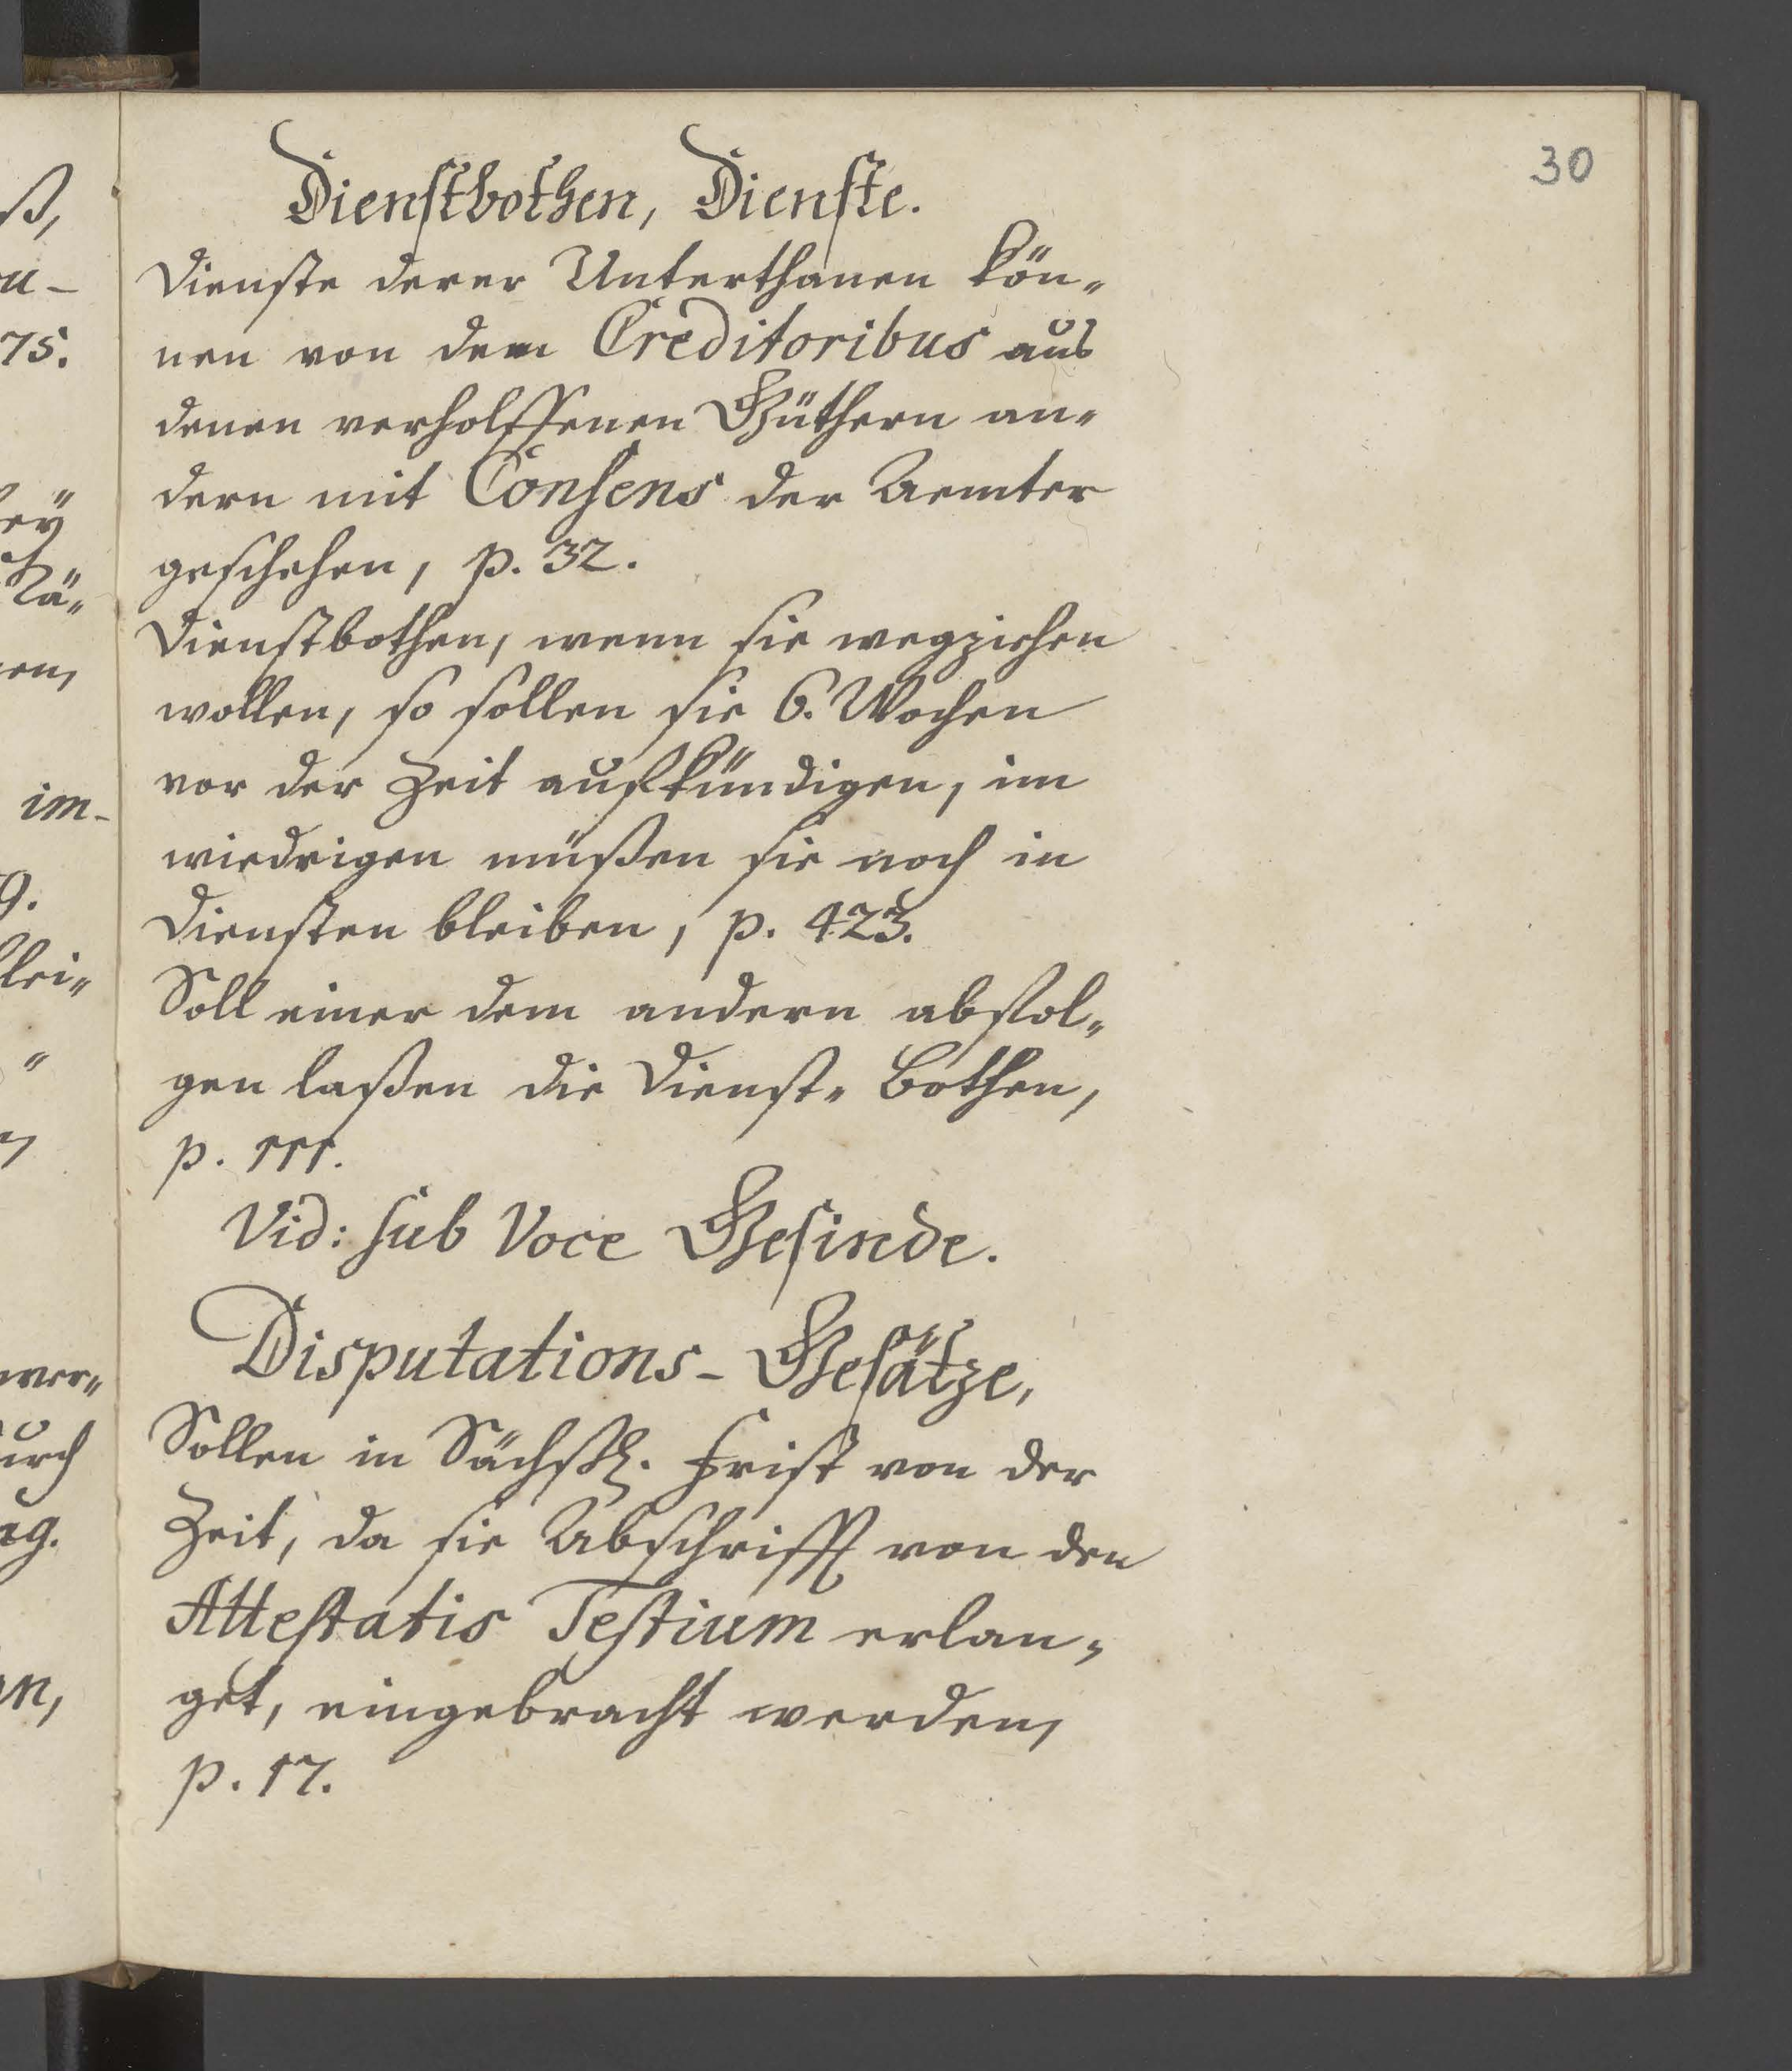 30
Dienstbothen, Dienste.
Dienste derer Unterthanen kön-
nen von dem Creditoribus aus
denen verholffenen Güthern an-
dern mit Consens der Aemter
geschehen, p. 32.
Dienstbothen, wenn sie wegziehen
wollen, so sollen sie 6. Wochen
vor der Zeit aufkündigen, im
wiedrigen müßen sie noch in
Diensten bleiben, p. 423.
Soll einer dem andern abfol-
gen laßen die Dienst- Bothen,
p. 111.
Vid: sub Voce Gesinde.
Disputations- Gesätze,
Sollen in Sächß. Frist von der
Zeit, da sie Abschrifft von den
Attestatis Testium erlan-
get, eingebracht werden,
p. 17.
ß,
u-
75.
im-
9.
lei-
wer-
urch